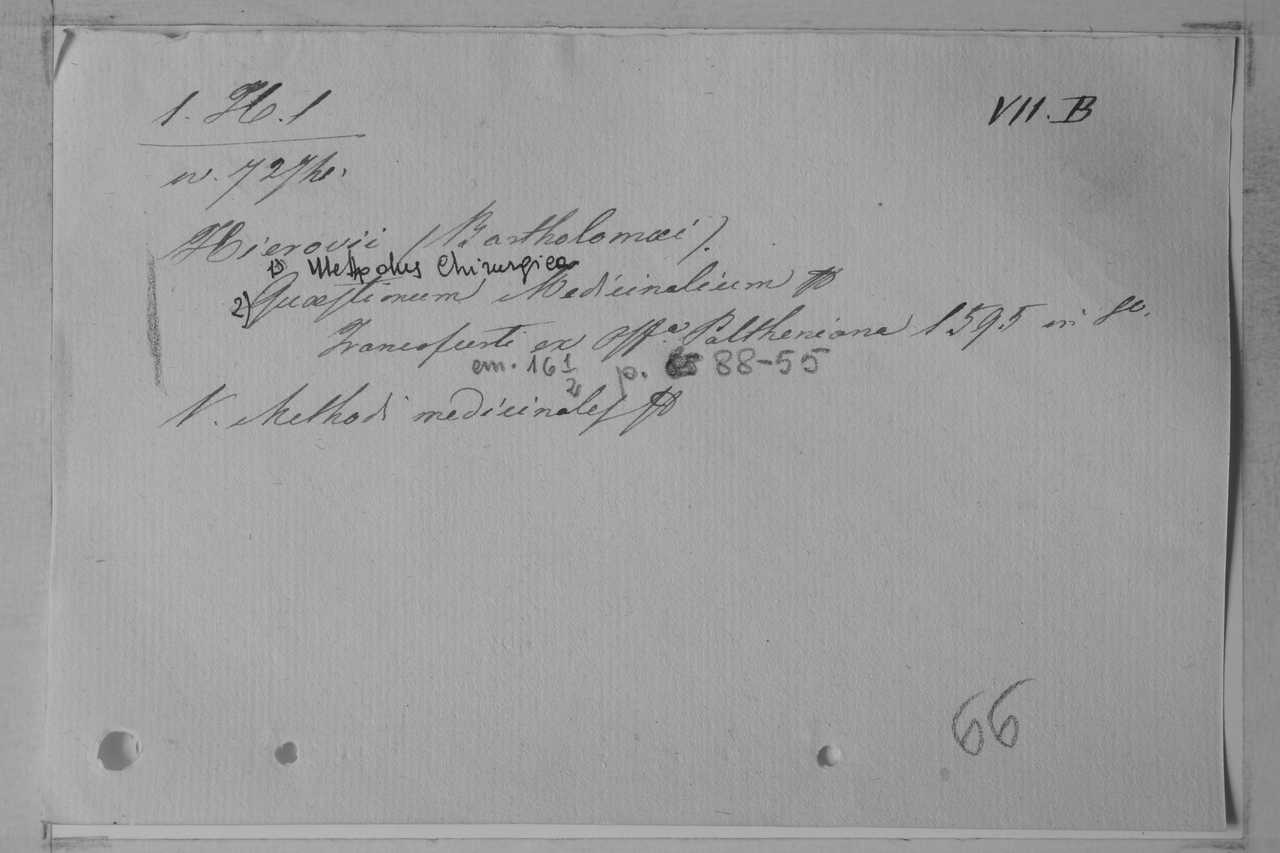 1. H. 1
VII. B
Hierovii (Bartholomæi).
1) Methodus Chirurgica
2) Quæstionum Medicinalium
Francofurti ex offᵃ Paltheniana 1595 in 8o.
cm. 16 1/2 p. 88-55
V. Methodi medicinales
66